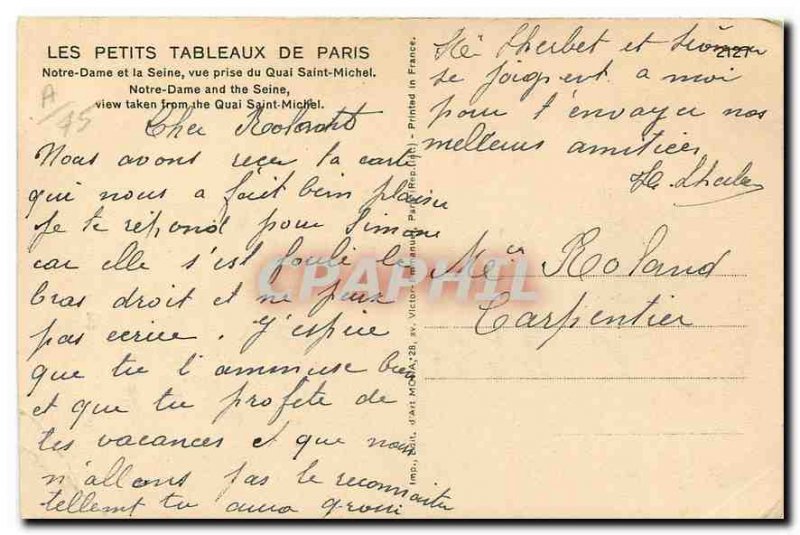 LES PETITS TABLEAUX DE PARIS
Notre-Dame et la Seine, vue prise du Quai Saint-Michel.
Notre-Dame and the Seine,
view taken from the Quai Saint-Michel.
A/45
Cher Roland
Nous avons reçu ta carte
qui nous a fait bien plaisir
Je te répond pour Simone
car elle s'est foulé le
bras droit et ne peux
pas ecrire. J'espère
que tu t'ammuse bien
et que tu profite de
tes vacances et que nous
n'allons pas te reconnaitre
tellemt tu aura grossi
Imp., Edit. d'Art MONA, 28, av. Victor-Emmanuel Paris (Rep. Int.) - Printed in France.
2127
Me Lherbet et Simone
se joignent a moi
pour t'envoyer nos
meilleurs amitiées
Lherbet
Roland
Carpentier
CPAPHIL